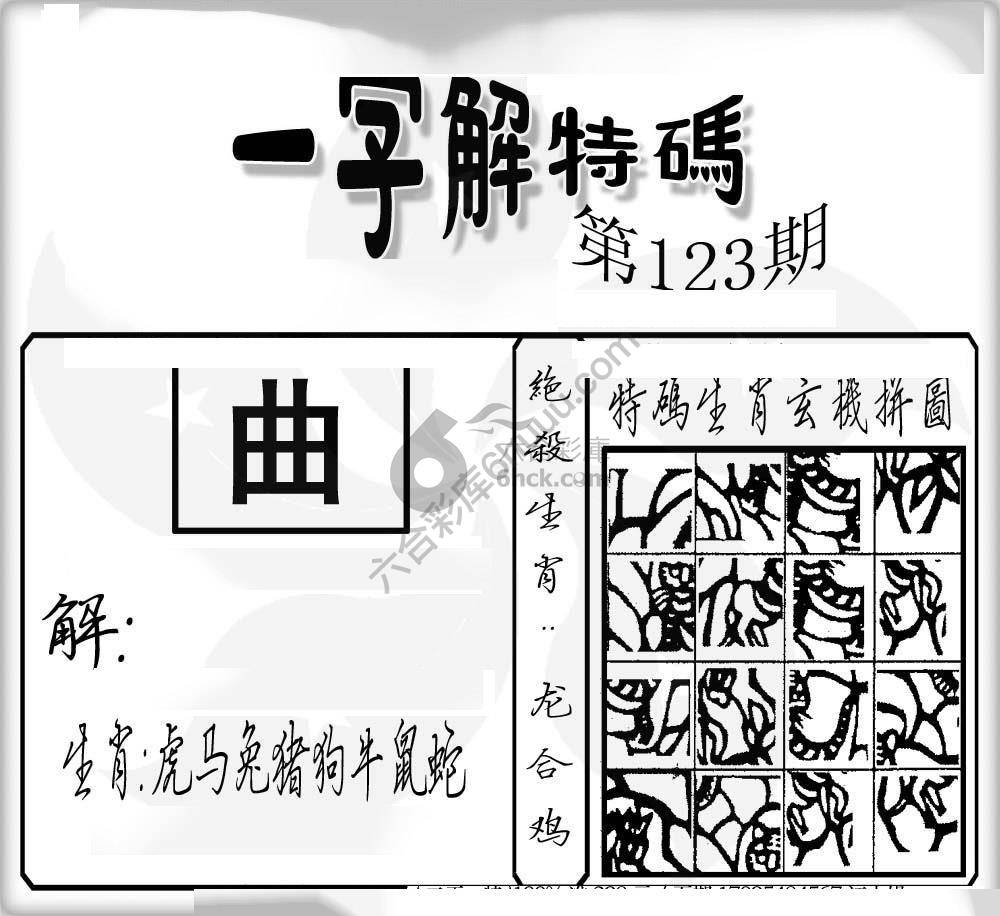 一字解特碼
第123期
曲
解:
生肖:虎马兔猪狗牛鼠蛇
絶殺生肖:龙合鸡
特碼生肖玄機拼圖
六合彩库6huuu.com
6nck.com